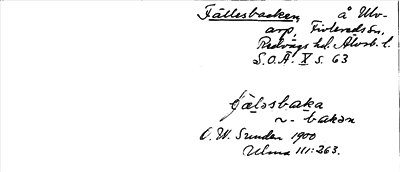 Fällesbacken å Ulv-
arp, Finneredsön,
Redvägs hd. Älvsb. l.
S.O.Ä. X s. 63
fäləsbaka
~ - bakən
O. W. Sunden 1900
Ulma 111:263.